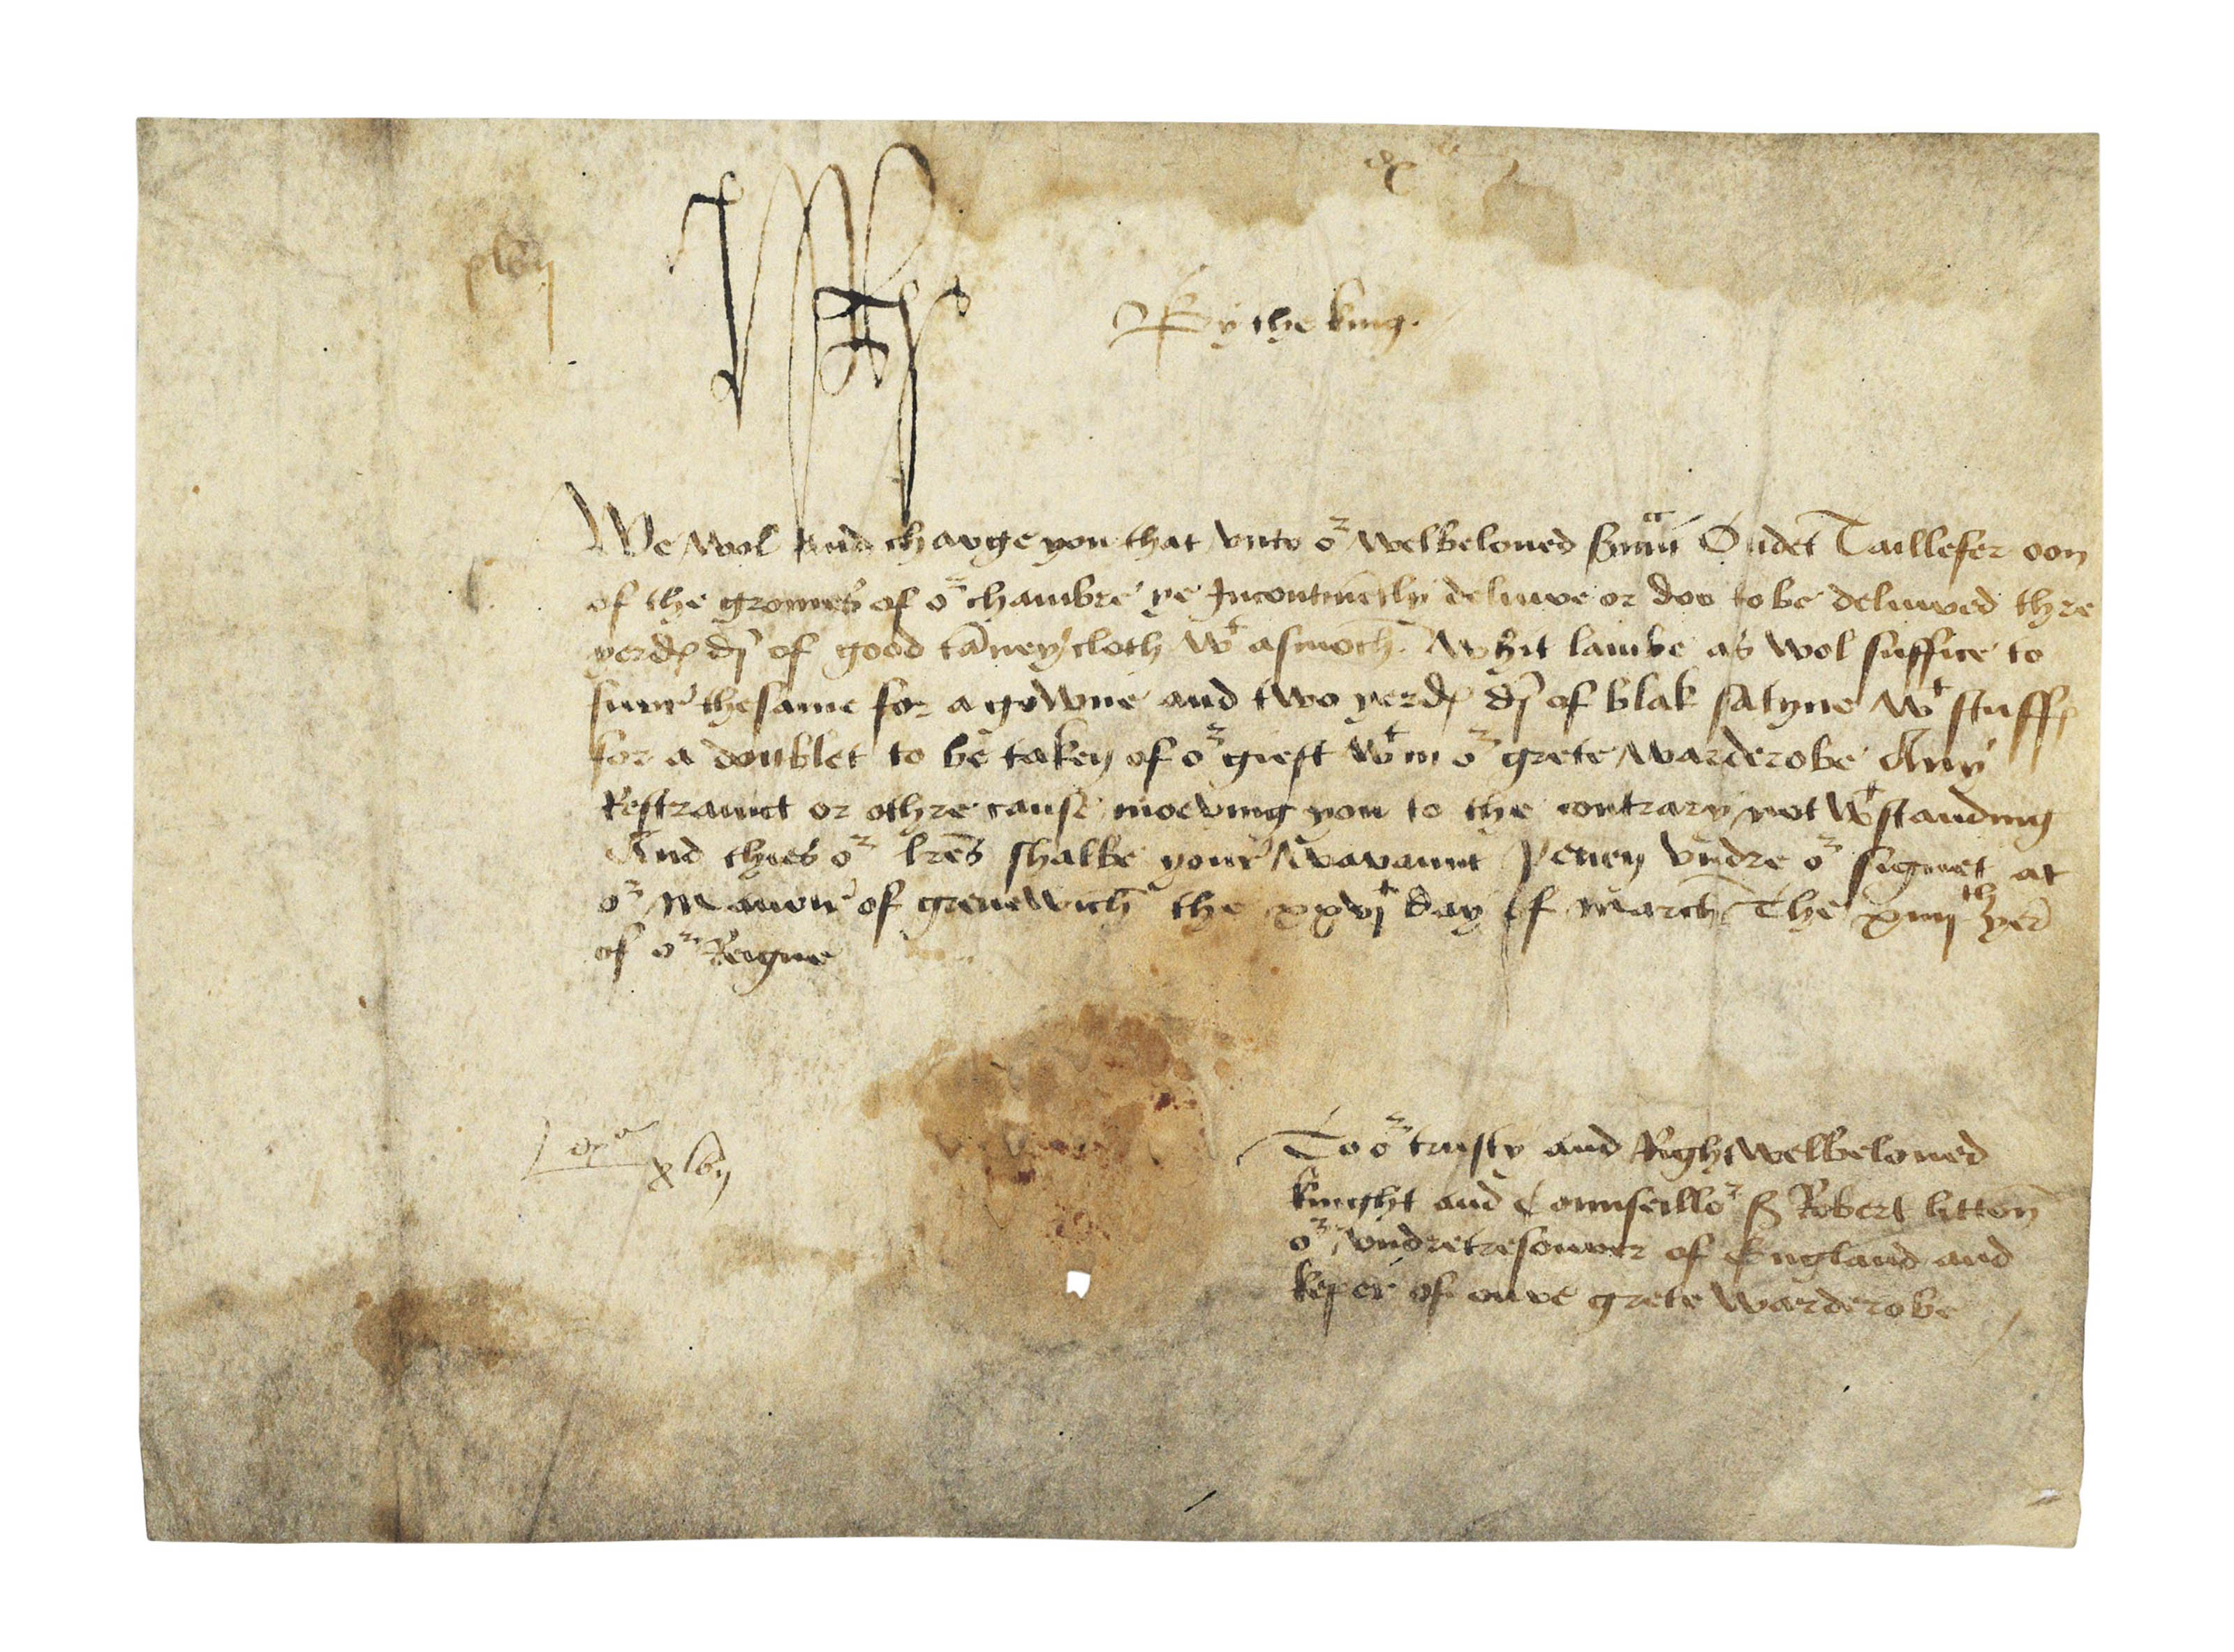 xlvij
HR
By the king.
We wol and charge you that vnto oʳ welbeloued sruᵃnt Oudet Taillefer oon
of the gromes of oʳ chambre ye Incontinētly deliuve or doo to be deliuved thre
yerdꝭ dī of good tāney cloth wᵗ asmoch whit lambe as wol suffice to
furre thesame for a gowne and two yerdꝭ dī of blak satyne wᵗ stuffꝭ
for a doublet to be taken of oʳ gieft wᵗin oʳ grete warderobe Any
Restraint or othre cause moeving you to the contrary not wᵗstanding
And thies oʳ lrēs shalbe your waraunt yeuen vndre oʳ signet at
oʳ Manoir of grenewich the xxvjᵗ day of march The xiiijᵗʰ yer
of oʳ Reigne
xlvij
To oʳ trusty and Right welbeloued
knight and Counseilloʳ sʳ Robert litton
oʳ vndretresourer of England and
keper of oure grete warderobe